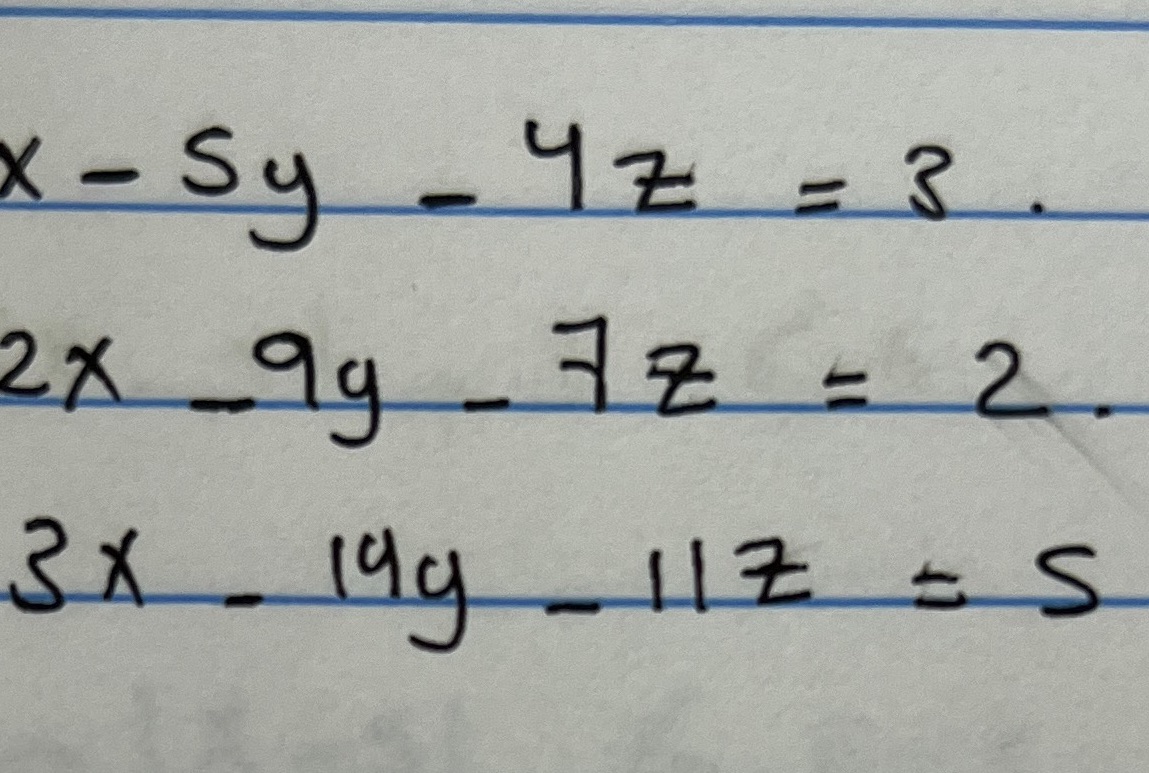 x - 5y - 4z = 3.
2x - 9y - 7z = 2.
3x - 14y - 11z = 5